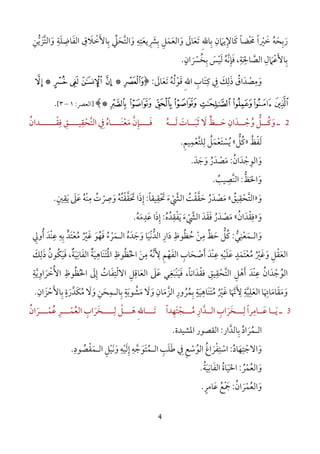 رَبِحَهُ خَيْراً مَحْضاً كَالإِيمَانِ بِاللهِ تَعَالَى وَالعَمَلِ بِشَرِيعَتِهِ وَالتَّحَلِّي بِالأَخْلَاقِ الفَاضِلَةِ وَالتَّزَيُّنِ
بِالأَعْمَالِ الصَّالِحَةِ، فَإِنَّهُ لَيْسَ بِخُسْرَانٍ.
وَمِصْدَاقُ ذَلِكَ فِي كِتَابِ اللهِ قَوْلُهُ تَعَالَى: ﴿وَٱلْعَصْرِ * إِنَّ ٱلْإِنسَٰنَ لَفِى خُسْرٍ * إِلَّا
ٱلَّذِينَ ءَامَنُوا۟ وَعَمِلُوا۟ ٱلصَّٰلِحَٰتِ وَتَوَاصَوْا۟ بِٱلْحَقِّ وَتَوَاصَوْا۟ بِٱلصَّبْرِ﴾ [العصر: ١ - ٣].
2 ـ وَكُــلُّ وُجْــدَانِ حَــظٍّ لَا ثَبَــاتَ لَــهُ فَــإِنَّ مَعْنَــاهُ فِي التَّحْقِيــقِ فِقْــدَانُ
لَفْظُ «كُلُّ» يُسْتَعْمَلُ لِلتَّعْمِيمِ.
وَالوِجْدَانُ: مَصْدَرُ وَجَدَ.
وَالحَظُّ: النَّصِيبُ.
وَ«التَّحْقِيقُ» مَصْدَرُ حَقَّقْتُ الشَّيْءَ تَحْقِيقاً: إِذَا تَحَقَّقْتَهُ وَصِرْتَ مِنْهُ عَلَى يَقِينٍ.
وَ«فِقْدَانُ» مَصْدَرُ فَقَدَ الشَّيْءَ يَفْقِدُهُ: إِذَا عَدِمَهُ.
وَالـمَعْنِيُّ: كُلُّ حَظٍّ مِنْ حُظُوظِ دَارِ الدُّنْيَا وَجَدَهُ الـمَرْءُ فَهُوَ غَيْرُ مُعْتَدٍّ بِهِ عِنْدَ أُولِي
العَقْلِ وَغَيْرُ مُعْتَمَدٍ عَلَيْهِ عِنْدَ أَصْحَابِ الفَهْمِ لِأَنَّهُ مِنَ الحُظُوظِ الـمُتَنَاهِيَةِ الفَانِيَةِ، فَيَكُونُ ذَلِكَ
الوُجْدَانُ عِنْدَ أَهْلِ التَّحْقِيقِ فِقْدَاناً، فَيَنْبَغِي عَلَى العَاقِلِ الالْتِفَاتُ إِلَى الحُظُوظِ الأُخْرَاوِيَّةِ
وَمَقَامَاتِهَا العَلِيَّةِ لِأَنَّهَا غَيْرُ مُتَنَاهِيَةٍ بِمُرُورِ الزَّمَانِ وَلَا مَشُوبَةٍ بِالـمِحَنِ وَلَا مُكَدَّرَةٍ بِالأَحْزَانِ.
3 ـ يَــا عَــامِراً لِــخَرَابِ الــدَّارِ مُــجْتَهِداً تَــاللهِ هَــلْ لِــخَرَابِ العُمْــرِ عُمْــرَانُ
الـمُرَادُ بِالدَّارِ: القصور المشيدة.
وَالاجْتِهَادُ: اسْتِفْرَاغُ الوُسْعِ فِي طَلَبِ الـمُتَوَجَّهِ إِلَيْهِ وَنَيْلِ الـمَقْصُودِ.
وَالعُمْرُ: الحَيَاةُ الفَانِيَةُ.
وَالعُمْرَانُ: جَمْعُ عَامِرٍ.
4